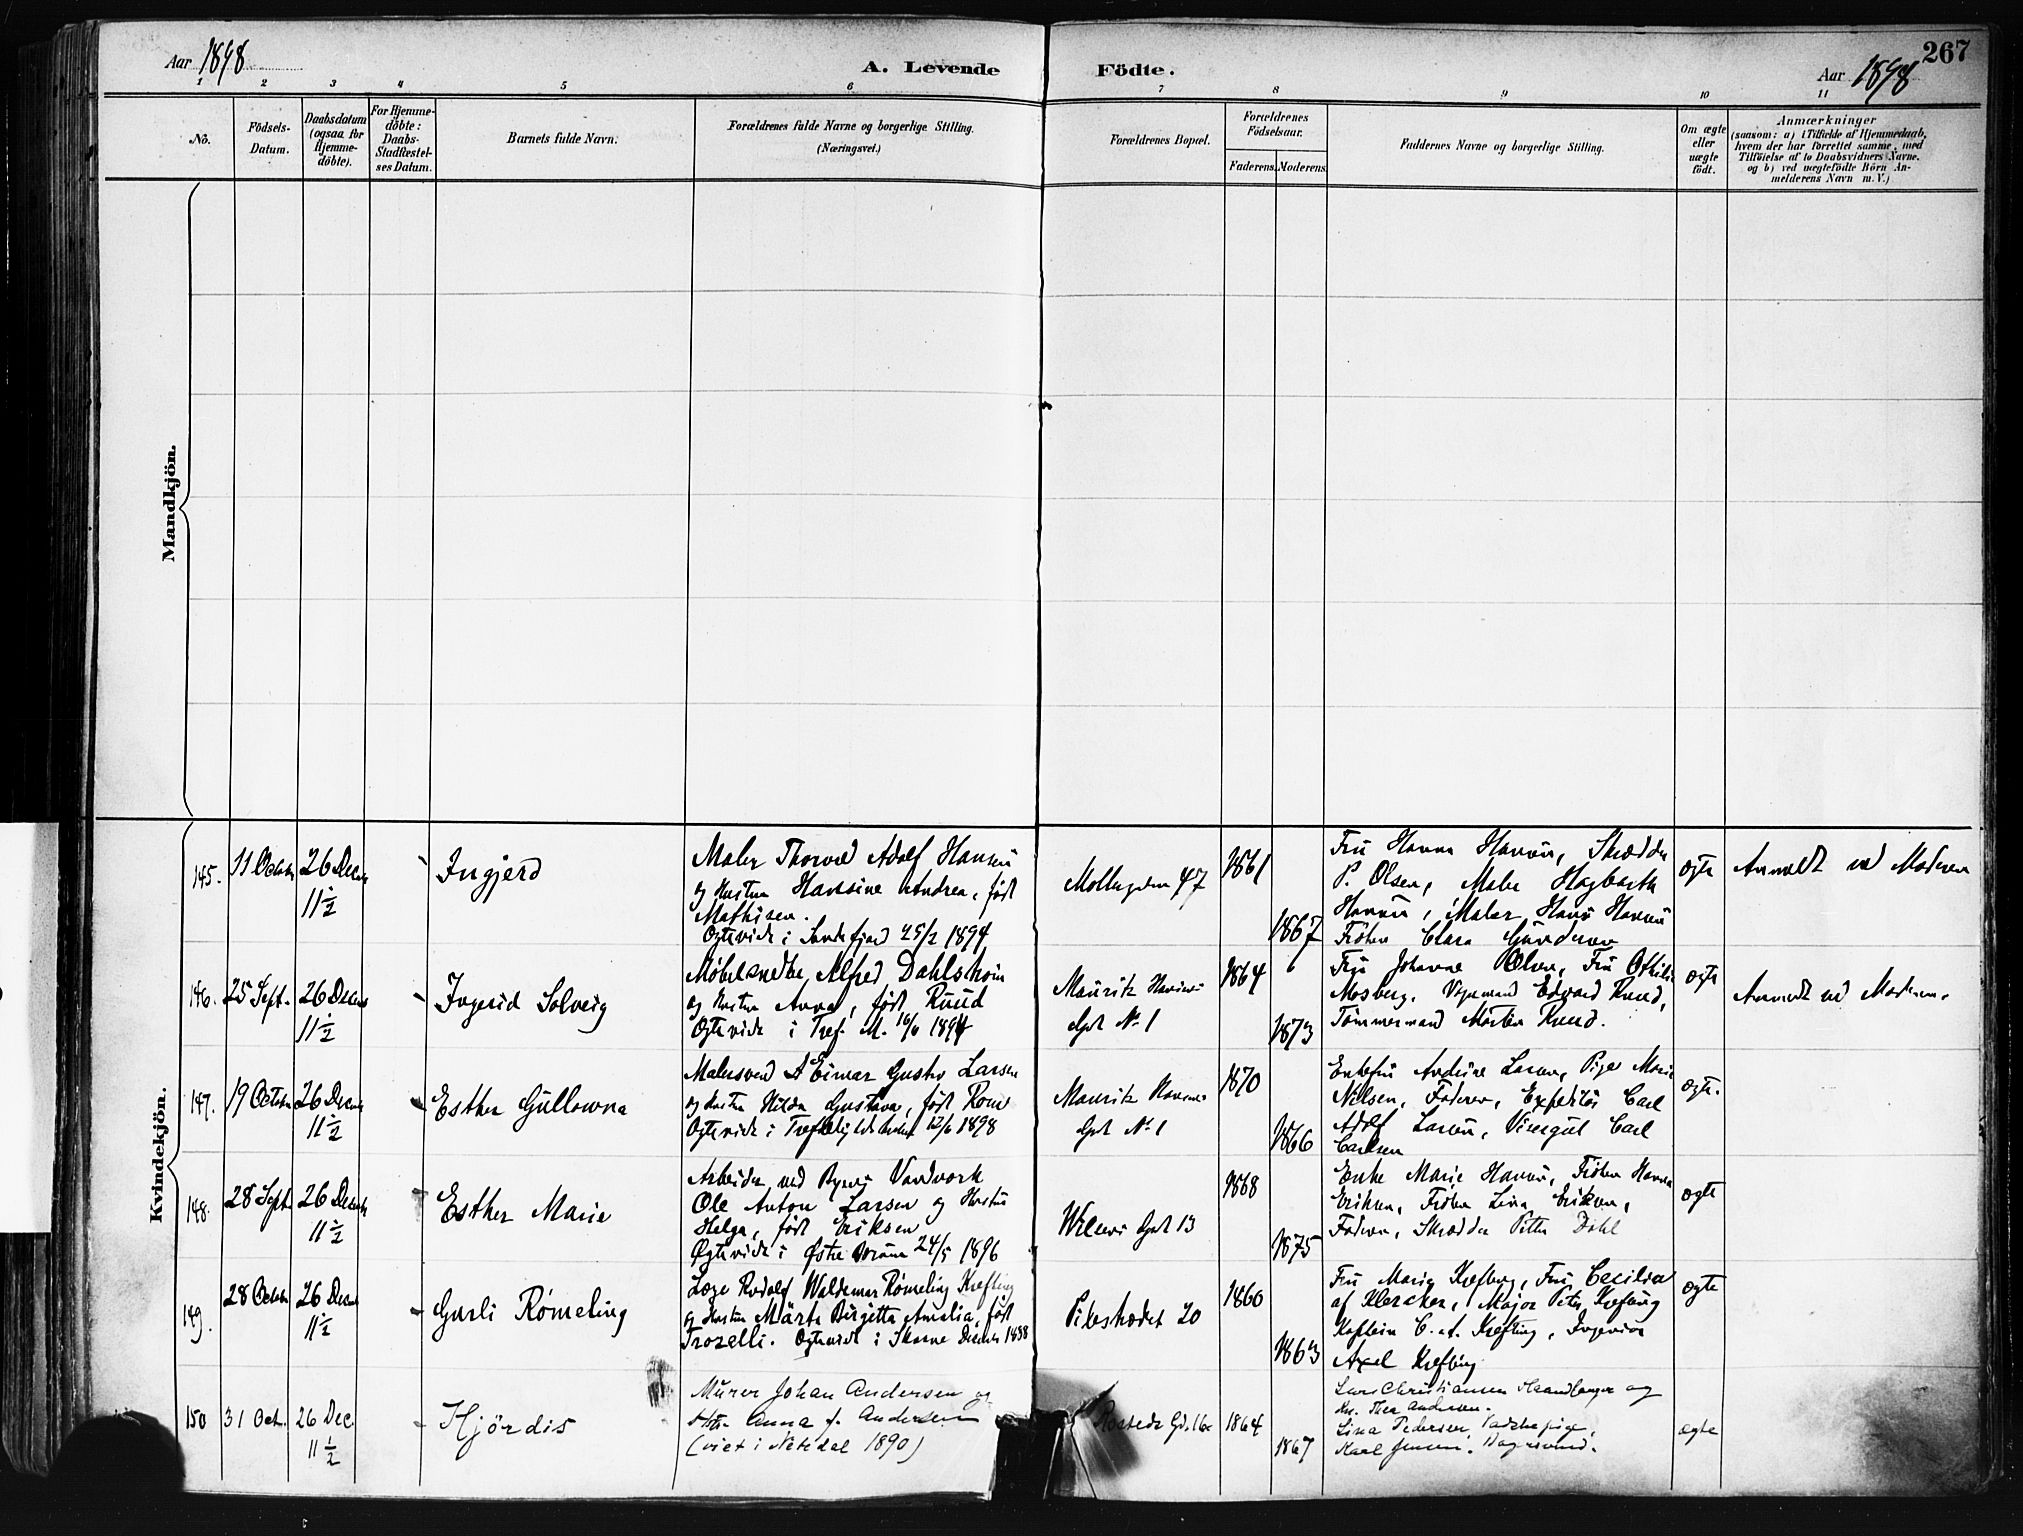 Aar 1898
A. Levende Födte.
267
Aar 1898
1 2 3 4 5 6 7 8 9 10 11
No.
Födsels-Datum.
Daabsdatum (ogsaa for Hjemme-döbte).
For Hjemme-döbte: Daabs-Stadfæstel-ses Datum.
Barnets fulde Navn.
Forældrenes fulde Navne og borgerlige Stilling.
(Næringsvei.)
Forældrenes Bopæl.
Forældrenes Födselsaar.
Faderens. Moderens.
Faddernes Navne og borgerlige Stilling.
Om ægte eller uægte födt.
Anmærkninger
(saasom: a) i Tilfælde af Hjemmedaab,
hvem der har forrettet samme, med
Tilföielse af to Daabsvidners Navne.
og b) ved uægtefödte Börn An-
melderens Navn m. V.)
Mandkjön.
Kvindekjön.
145. 11 Octob 26 Decem 11 1/2
Ingjerd
Maler Thorvald Adolf Hansen
og Hustru Hansine Andrea, født
Mathisen.
Ogteviede i Sandefjord 25/2 1894
Møllegaden 47
1861
1867
Fru Hanna Hansen, Skrædder
P. Olsen, Maler Hagbarth
Hansen, Maler Hans Hansen
Frøken Clara Gundersen
ogte
Anmeldt ved Moderen
146. 25 Sept. 26 Decem 11 1/2
Ingerid Solveig
Møbelsnedker Alfred Dahlsheim
og Hustru Anna, født Ruud
Ogteviede i Tref. M. 1894
Mauritz Hansens
Gd. No 1
1864
1873
Fru Johanne Olsen, Fru Othilie
Mosberg, Edvard Ruud,
Tømmermand Morten Ruud.
ogte
Anmeldt ved Moderen.
147. 19 Octob 26 Decem 11 1/2
Esther Gullowna
Malersvend Einar Gustav Larsen
og Hustru Hilda Gustava, født
Ogteviede i 12/6 1898
Mauritz Hansens
Gd. No 1
1870
1866
Enkefru Andrine Larsen, Pige Marie
Nilsen, Faderen, Expeditør Carl
Adolf Larsen, Carl
Carlsen
ogte.
148. 28 Sept 26 Decem 11 1/2
Esther Marie
Arbeider ved Byens Vandværk
Ole Anton Larsen og Hustru
Helga, født Eriksen
Ogteviede i Østre 24/5 1896
Gd. 13
1868
1875
Enke Marie Hansen, Frøken Hanna
Eriksen, Frøken Lina Eriksen,
Faderen, Skrædder Petter Dahl
ogte
149. 28 Octob 26 Decem 11 1/2
Gurli Rømeling
Læge Rudolf Waldemar Rømeling Krefting
og Hustru Märta Birgitta Amalia, født
Trozelli. Ogteviede i Skaane Decemb 1888
Pilestrædet 20
1860
1863
Fru Marie Krefting, Fru Cecilia
af Klercker, Major Peter Krefting
Kaptein C. A. Krefting, Ingeniør
Axel Krefting
ogte
150 31 Oct. 26 Dec. 11 1/2
Hjördis
Murer Johan Andersen og
Hustru Anna f. Andersen
(viet i Nitedal 1890)
Gd. 16
1864
1867
Lars Christiansen Haandlanger og
Hu. Thea Andersen.
Lina Pedersen,
Karl Jensen,
ogte